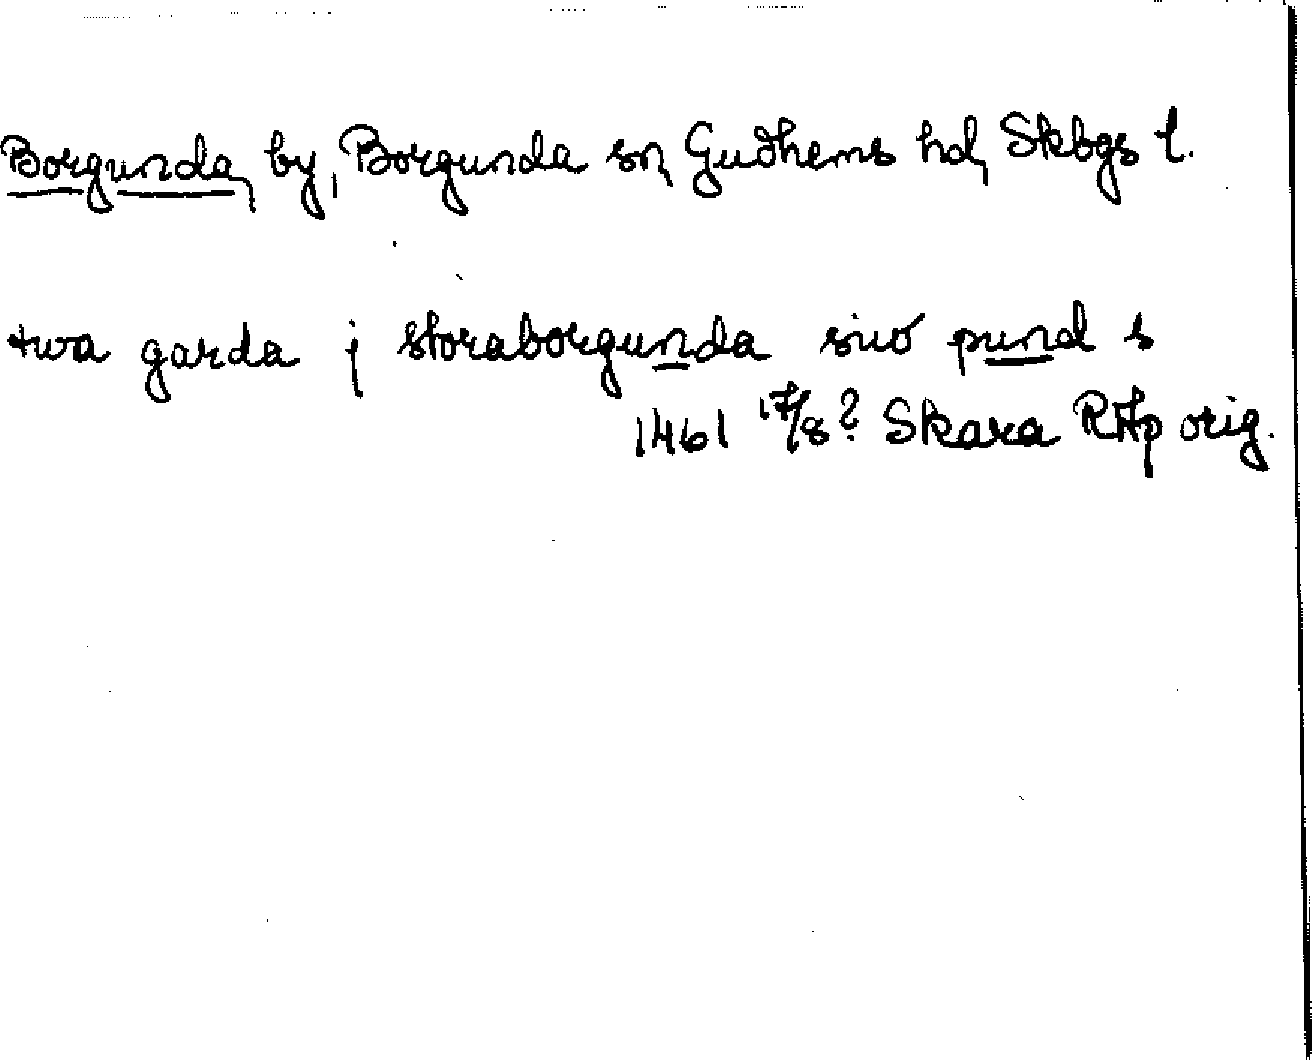 Borgunda, by, Borgunda sn, Gudhems hd, Skbgs l.
twa garda j storaborgunda siw pund s
1461 17/8? Skara RAp orig.